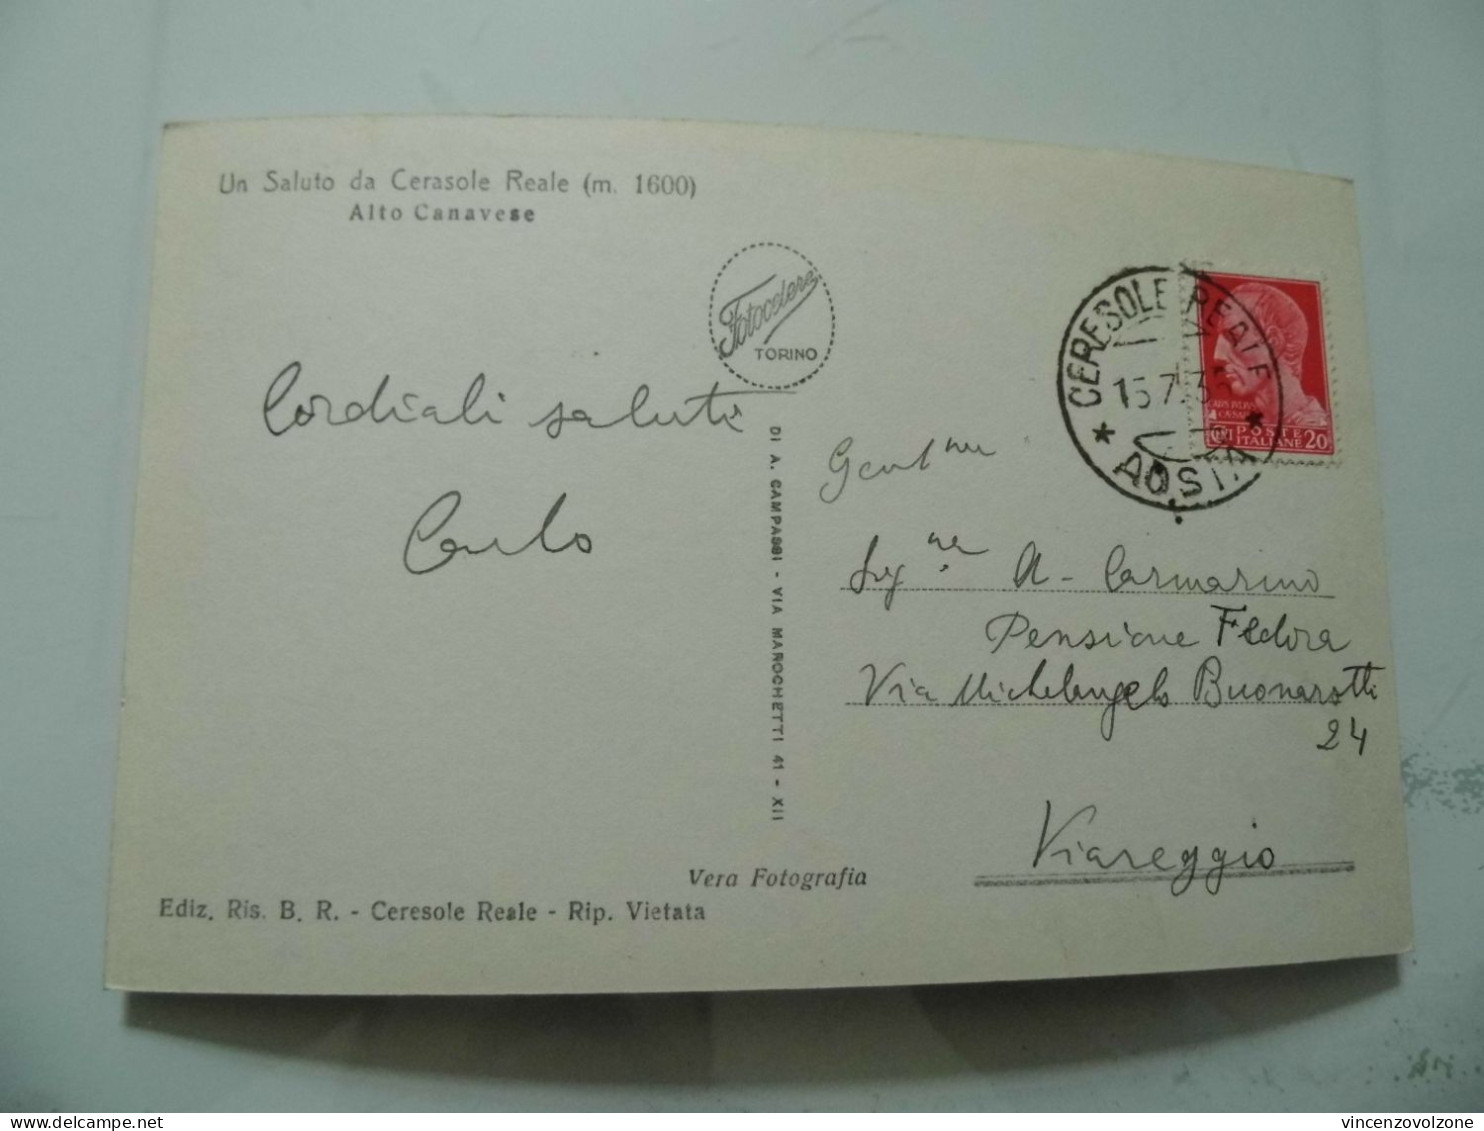 Un Saluto da Cerasole Reale (m. 1600)
Alto Canavese
Fotocelere
TORINO
CERESOLE REALE
15.7.35
* AOSTA *
POSTE
ITALIANE
CENT 20
Cordiali saluti
Carlo
DI A. CAMPASSI - VIA MAROCHETTI 41 - XII
Gent.me
Sig.ne A. Carmarino
Pensione Fedora
Via Michelangelo Buonarotti
24
Viareggio
Vera Fotografia
Ediz. Ris. B. R. - Ceresole Reale - Rip. Vietata
vincenzovolzone